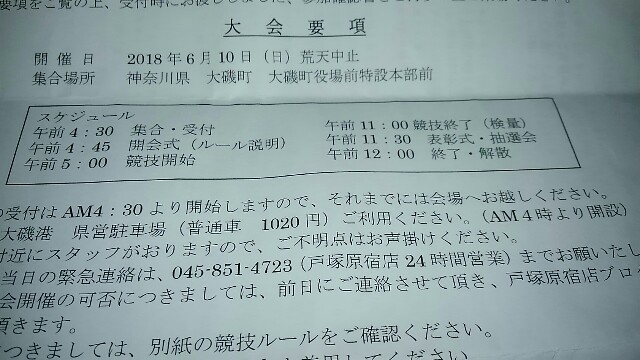 要項をご覧の上、受付時にお渡ししました、参加確認書と
大会要項
開催日 2018年6月10日（日）荒天中止
集合場所 神奈川県 大磯町 大磯町役場前特設本部前
スケジュール
午前4：30 集合・受付
午前4：45 開会式（ルール説明）
午前5：00 競技開始
午前11：00競技終了（検量）
午前11：30 表彰式・抽選会
午前12：00 終了・解散
の受付はAM4：30より開始しますので、それまでには会場へお越しください。
大磯港 県営駐車場（普通車 1020円）ご利用ください。（AM4時より開設）
付近にスタッフがおりますので、ご不明点はお声掛けください。
当日の緊急連絡は、045-851-4723（戸塚原宿店24時間営業）までお願いいたし
会開催の可否につきましては、前日にご連絡させて頂き、戸塚原宿店ブロ
頂きます。
つきましては、別紙の競技ルールをご確認ください。
してください。